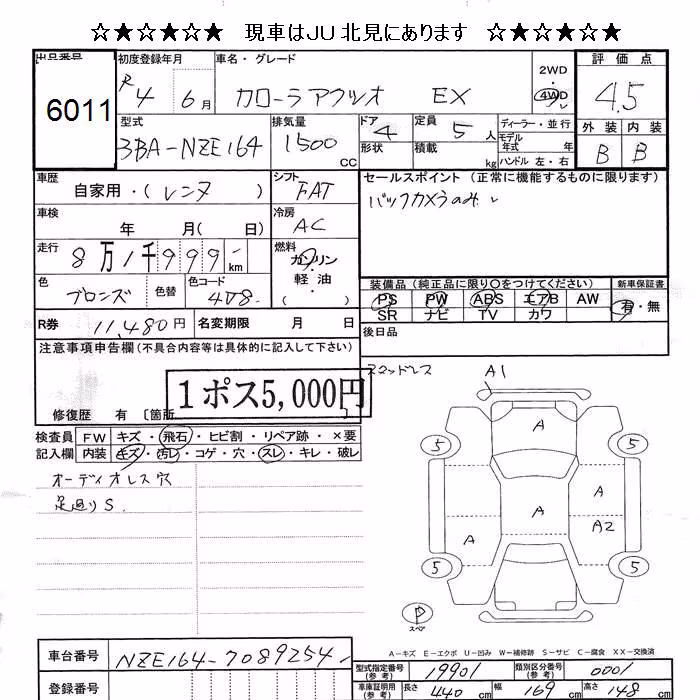 ☆★☆★☆★ 現車はJU北見にあります ☆★☆★☆★
出品番号 初度登録年月 車名・グレード 2WD 評価点
6011 R4 6月 カローラアクシオ EX 4WD 4.5
型式 排気量 ドア 定員 ディーラー・並行 外装 内装
3BA-NZE164 1500 CC 4 5人 モデル年式 年 B B
形状 積載 kg ハンドル 左・右
車歴 シフト セールスポイント (正常に機能するものに限ります)
自家用・(レンタ ) FAT バックカメラのみ
車検 年 月( 日) 冷房 AC
走行 8万1千999 km 燃料 ガソリン・軽油・( )
色 ブロンズ 色替 色コード 4V8 装備品 (純正品に限り○をつけてください) 新車保証書
PS PW ABS エアB AW 有・無
SR ナビ TV カワ
R券 11,480円 名変期限 月 日 後日品
注意事項申告欄 (不具合内容等は具体的に記入して下さい)
スマッドレス A1
1ポス5,000円
修復歴 有 〔箇所 〕
A
検査員記入欄 FW キズ・飛石・ヒビ割・リペア跡・×要
内装 キズ・汚レ・コゲ・穴・スレ・キレ・破レ
5 5
オーディオレス穴
足廻りS
A
A
A A2
5 5
P
スペア
A-キズ E-エクボ U-凹み W-補修跡 S-サビ C-腐食 XX-交換済
車台番号 NZE164-7089254
型式指定番号(参考) 19901 類別区分番号(参考) 0001
登録番号 車庫証明用(参考) 長さ 440 cm 幅 169 cm 高さ 148 cm